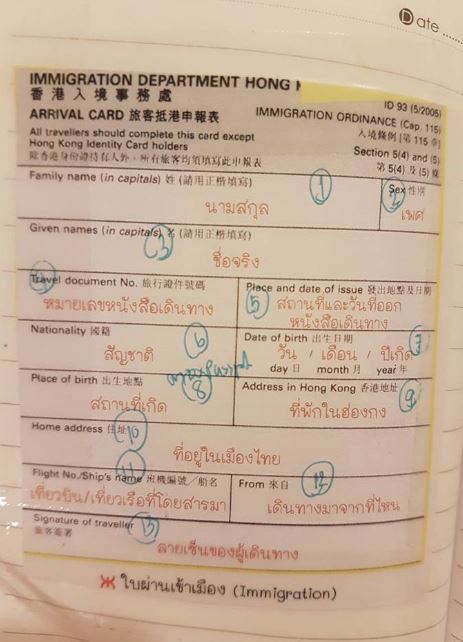 Date
IMMIGRATION DEPARTMENT HONG K
香港入境事務處
ID 93 (5/2005)
ARRIVAL CARD 旅客抵港申報表
IMMIGRATION ORDINANCE (Cap. 115)
入境條例 [第 115 章]
All travellers should complete this card except
Hong Kong Identity Card holders
Section 5(4) and (5)
除香港身份證持有人外，所有旅客均須填寫此申報表
第 5(4) 及 (5) 條
Family name (in capitals) 姓 (請用正楷填寫)
1
Sex 性別
2
นามสกุล
เพศ
Given names (in capitals) 名 (請用正楷填寫)
3
ชื่อจริง
Travel document No. 旅行證件號碼
Place and date of issue 發出地點及日期
หมายเลขหนังสือเดินทาง
5
สถานที่และวันที่ออก
หนังสือเดินทาง
Nationality 國籍
6
Date of birth 出生日期
7
สัญชาติ
วัน / เดือน / ปีเกิด
day 日 month 月 year 年
Place of birth 出生地點
8
Address in Hong Kong 香港地址
9
สถานที่เกิด
ที่พักในฮ่องกง
Home address 住址
10
ที่อยู่ในเมืองไทย
Flight No./Ship's name 班機編號／船名
11
From 來自
12
เที่ยวบิน/เที่ยวเรือที่โดยสารมา
เดินทางมาจากที่ไหน
Signature of traveller
13
旅客簽署
ลายเซ็นของผู้เดินทาง
ใบผ่านเข้าเมือง (Immigration)